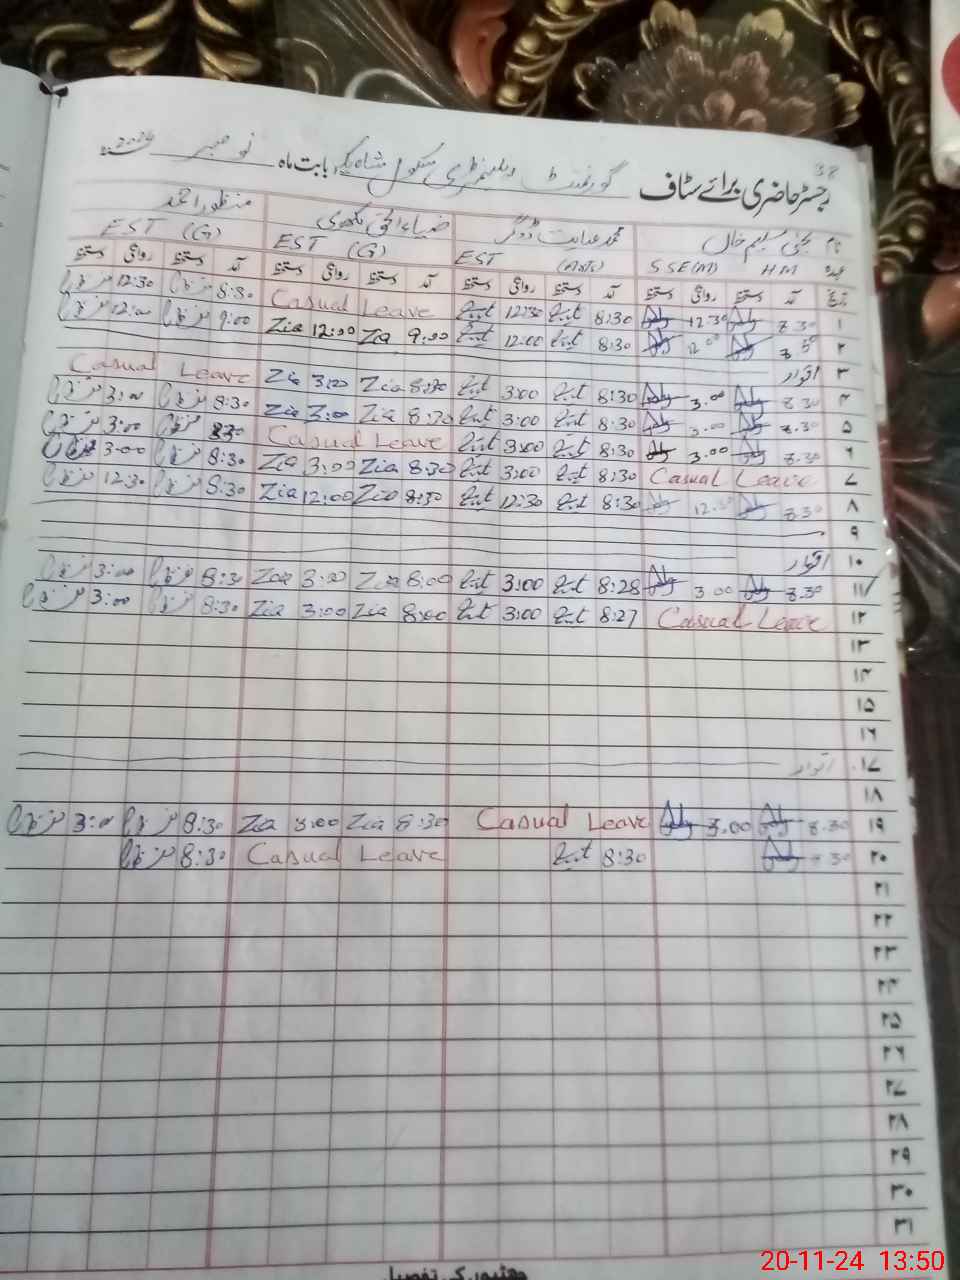 38
رجسٹر حاضری برائے سٹاف گورنمنٹ ایلیمنٹری سکول بابت ماہ نومبر 2024
نام یحییٰ سلیم خاں محمد عنایت ڈوگر ضیاء الحق لکھوی منظور احمد
عہدہ SSE(M) HM EST (Arts) EST (G) EST (G)
تاریخ آمد دستخط روانگی دستخط آمد دستخط روانگی دستخط آمد دستخط روانگی دستخط آمد دستخط روانگی دستخط
۱ 8.30 12.30 8:30 12:30 Casual Leave 8:30 12:30
۲ 8.30 12.00 8:30 12:00 9.00 Zia 12:00 Zia 9:00 12:00
۳ اتوار
۴ 8.30 3.00 8:30 3:00 8:30 Zia 3:00 Zia Casual Leave
۵ 8.30 3.00 8:30 3:00 8:30 Zia 3:00 Zia 8:30 منظور 3:00 منظور
۶ 8.30 3.00 8:30 3:00 Casual Leave 8:30 منظور 3:00 منظور
۷ Casual Leave 8:30 3:00 8:30 Zia 3:00 Zia 8:30 منظور 3:00 منظور
۸ 8.30 12.30 8:30 12:30 8:30 Zia 12:00 Zia 8:30 منظور 12:30 منظور
۹
۱۰ اتوار
۱۱ 8.30 3.00 8:28 3:00 8:00 Zia 3:30 Zia 8:30 منظور 3:00 منظور
۱۲ Casual Leave 8:27 3:00 8:00 Zia 3:00 Zia 8:30 منظور 3:00 منظور
۱۳
۱۴
۱۵
۱۶
۱۷ اتوار
۱۸
۱۹ 8.30 3.00 Casual Leave 8:30 Zia 3:00 Zia 8:30 منظور 3:00 منظور
۲۰ 8.30 8:30 Casual Leave 8:30 منظور
۲۱
۲۲
۲۳
۲۴
۲۵
۲۶
۲۷
۲۸
۲۹
۳۰
۳۱
چھٹیوں کی تفصیل
20-11-24 13:50